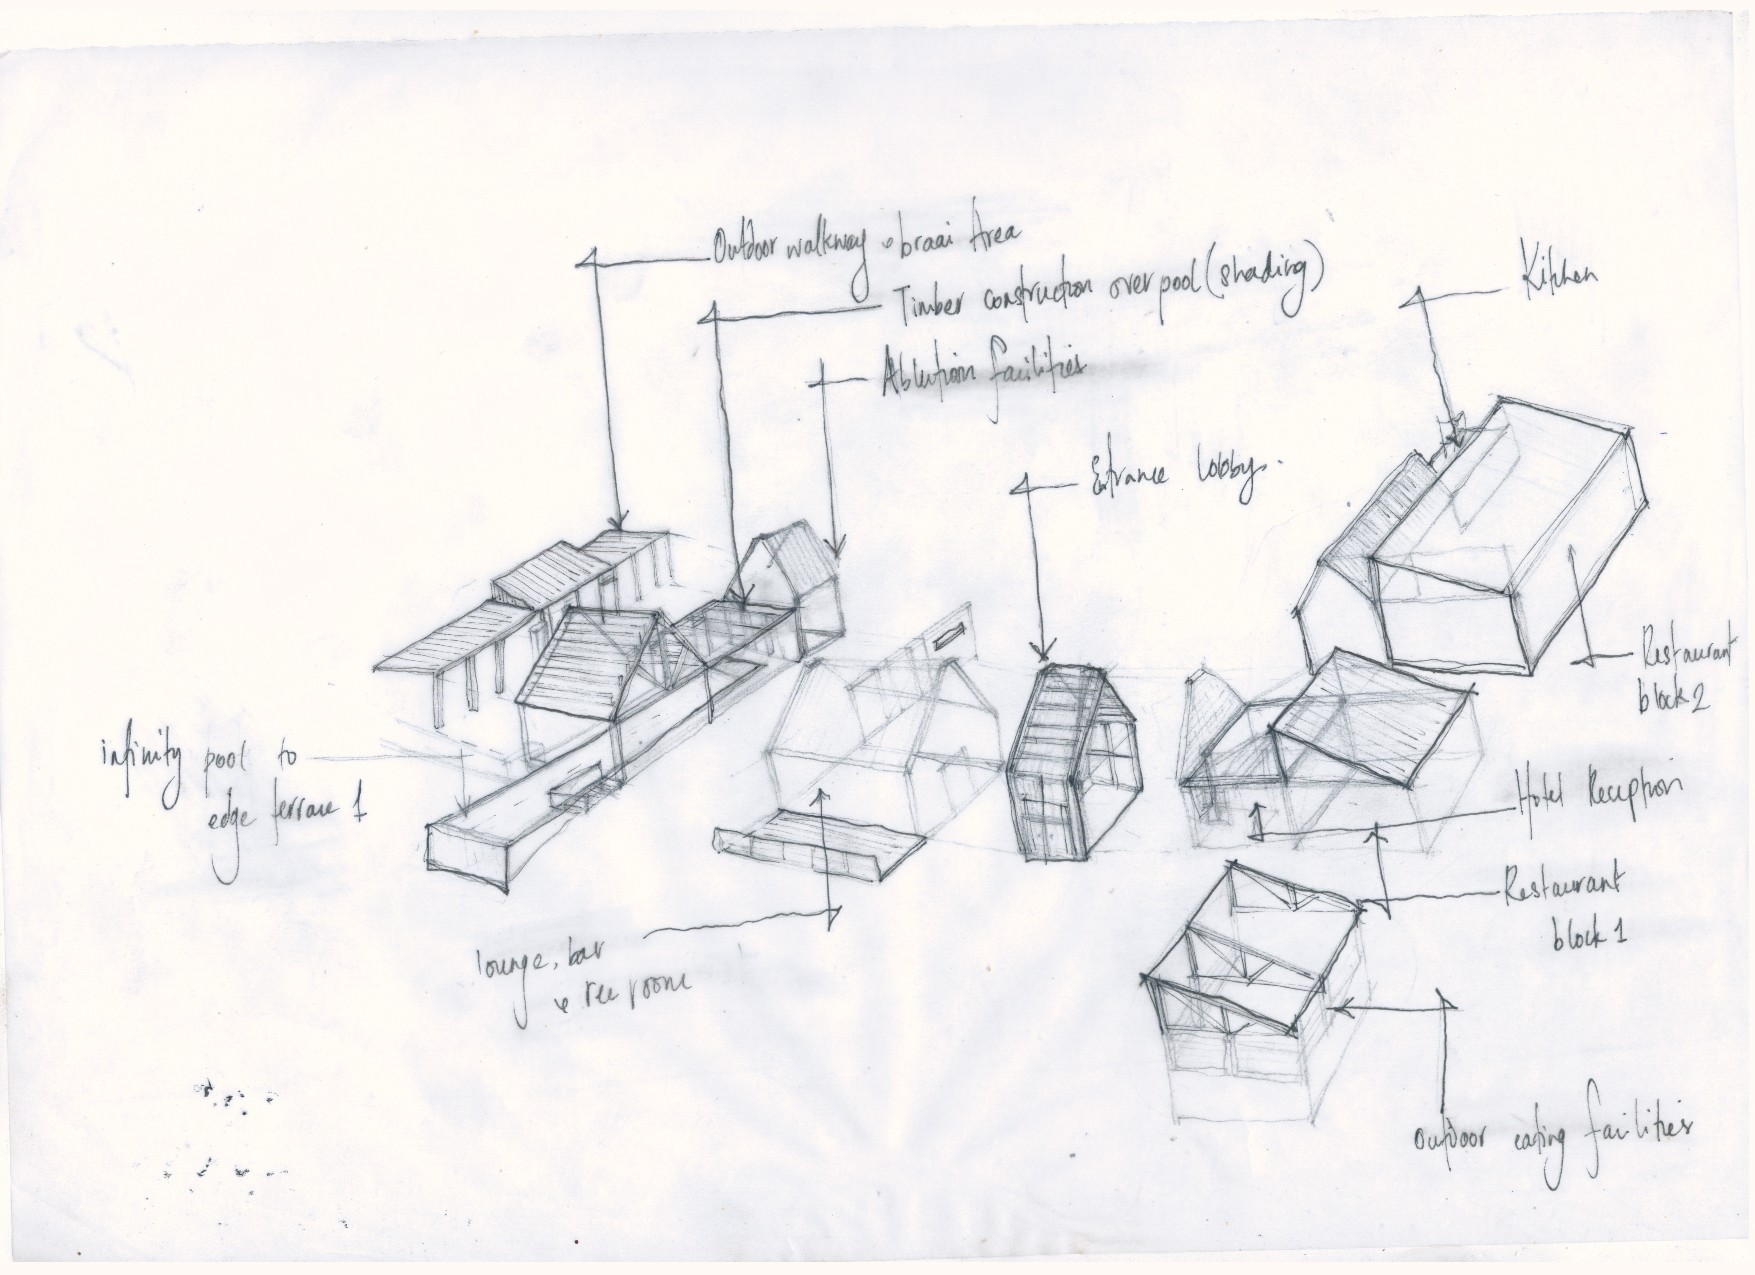 Outdoor walkway & braai Area
Timber construction over pool (shading)
Ablution facilities
Kitchen
Entrance lobby.
Restaurant
block 2
infinity pool to
edge terrace 1
Hotel Reception
Restaurant
block 1
lounge, bar
& rec room
outdoor eating facilities